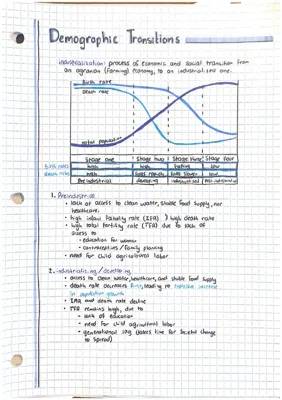 Demographic Transitions
industrialisation: process of economic and social transition from
an agrarian (farming) economy, to an industrialized one.
Birth rate
death rate
total population
Stage one Stage two Stage three Stage four
birth rates high high falling low
death rates high falls rapidly falls slower low
Preindustrial developing industrialised Post-industrial
1. Preindustrial
• lack of access to clean water, stable food supply, nor
healthcare.
• high infant fatality rate (IFR) } high death rate
• high total fertility rate (TFR) due to lack of
access to
• education for women
• contraceptives / family planning
• need for child agricultural labor
2. industrializing / developing
• access to clean water, healthcare, and stable food supply
• death rate decreases first, leading to increase
in population growth
• IMR and death rate decline
• TFR remains high, due to
• lack of education
• need for child agricultural labor
• generational lag (takes time for societal change
to spread)